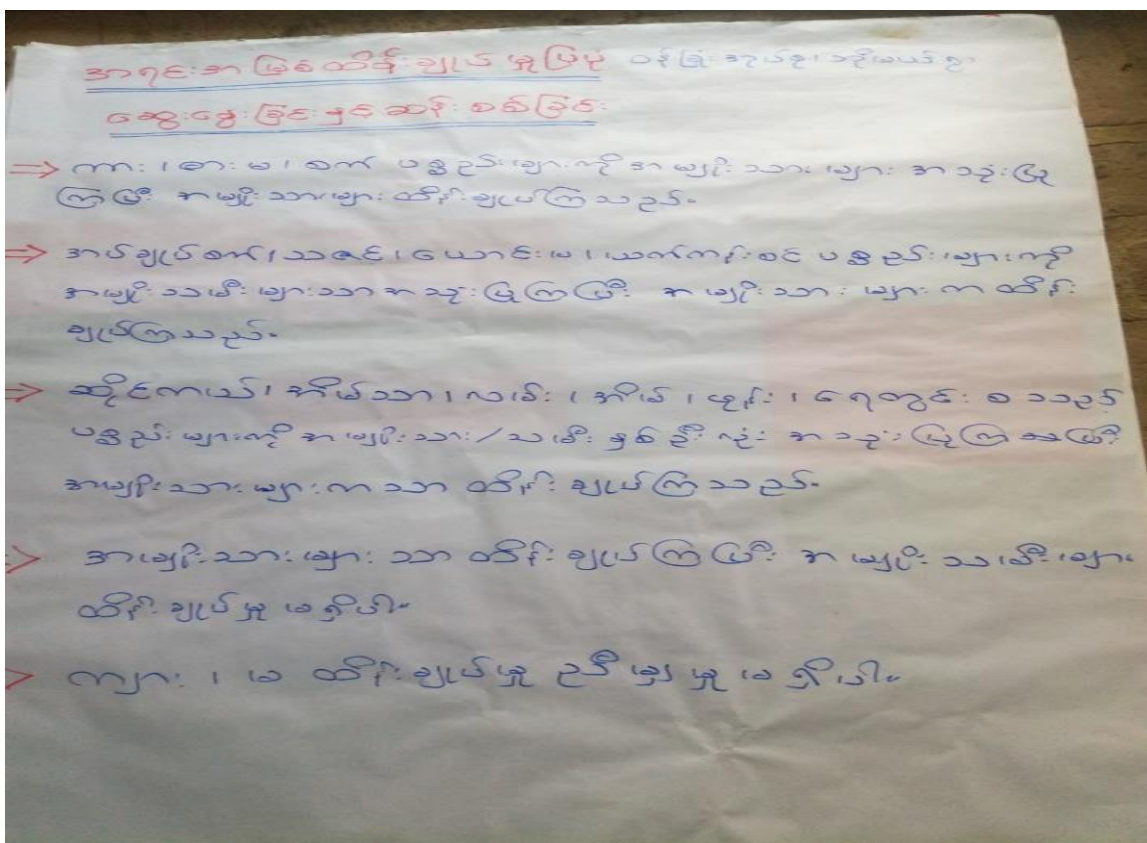 အရင်းအမြစ်ထိန်းချုပ်မှုပြပုံ ပန်းခြံအုပ်စု၊
ဆွေးနွေးခြင်းနှင့်ဆန်းစစ်ခြင်း
⇒ ကား၊ ဓား၊ မ၊ စက် ပစ္စည်းများကို အမျိုးသားများ အသုံးပြု
ကြပြီး အမျိုးသားများ ထိန်းချုပ်ကြသည်။
⇒ အပ်ချုပ်စက်၊ သဇင်၊ ယောင်းမ၊ ယက်ကန်းစင် ပစ္စည်းများကို
အမျိုးသမီးများသာအသုံးပြုကြပြီး အမျိုးသားများကထိန်း
ချုပ်ကြသည်။
⇒ ဆိုင်ကယ်၊ အိမ်သာ၊ လမ်း၊ အိမ်၊ ဖုန်း၊ ရေတွင်း စသည့်
ပစ္စည်းများကို အမျိုးသား/သမီး နှစ်ဦးလုံး အသုံးပြုကြပြီး
အမျိုးသားများကသာ ထိန်းချုပ်ကြသည်။
⇒ အမျိုးသားများသာ ထိန်းချုပ်ကြပြီး အမျိုးသမီးများ
ထိန်းချုပ်မှု မရှိပါ။
⇒ ကျား၊ မ ထိန်းချုပ်မှု ညီမျှမှု မရှိပါ။